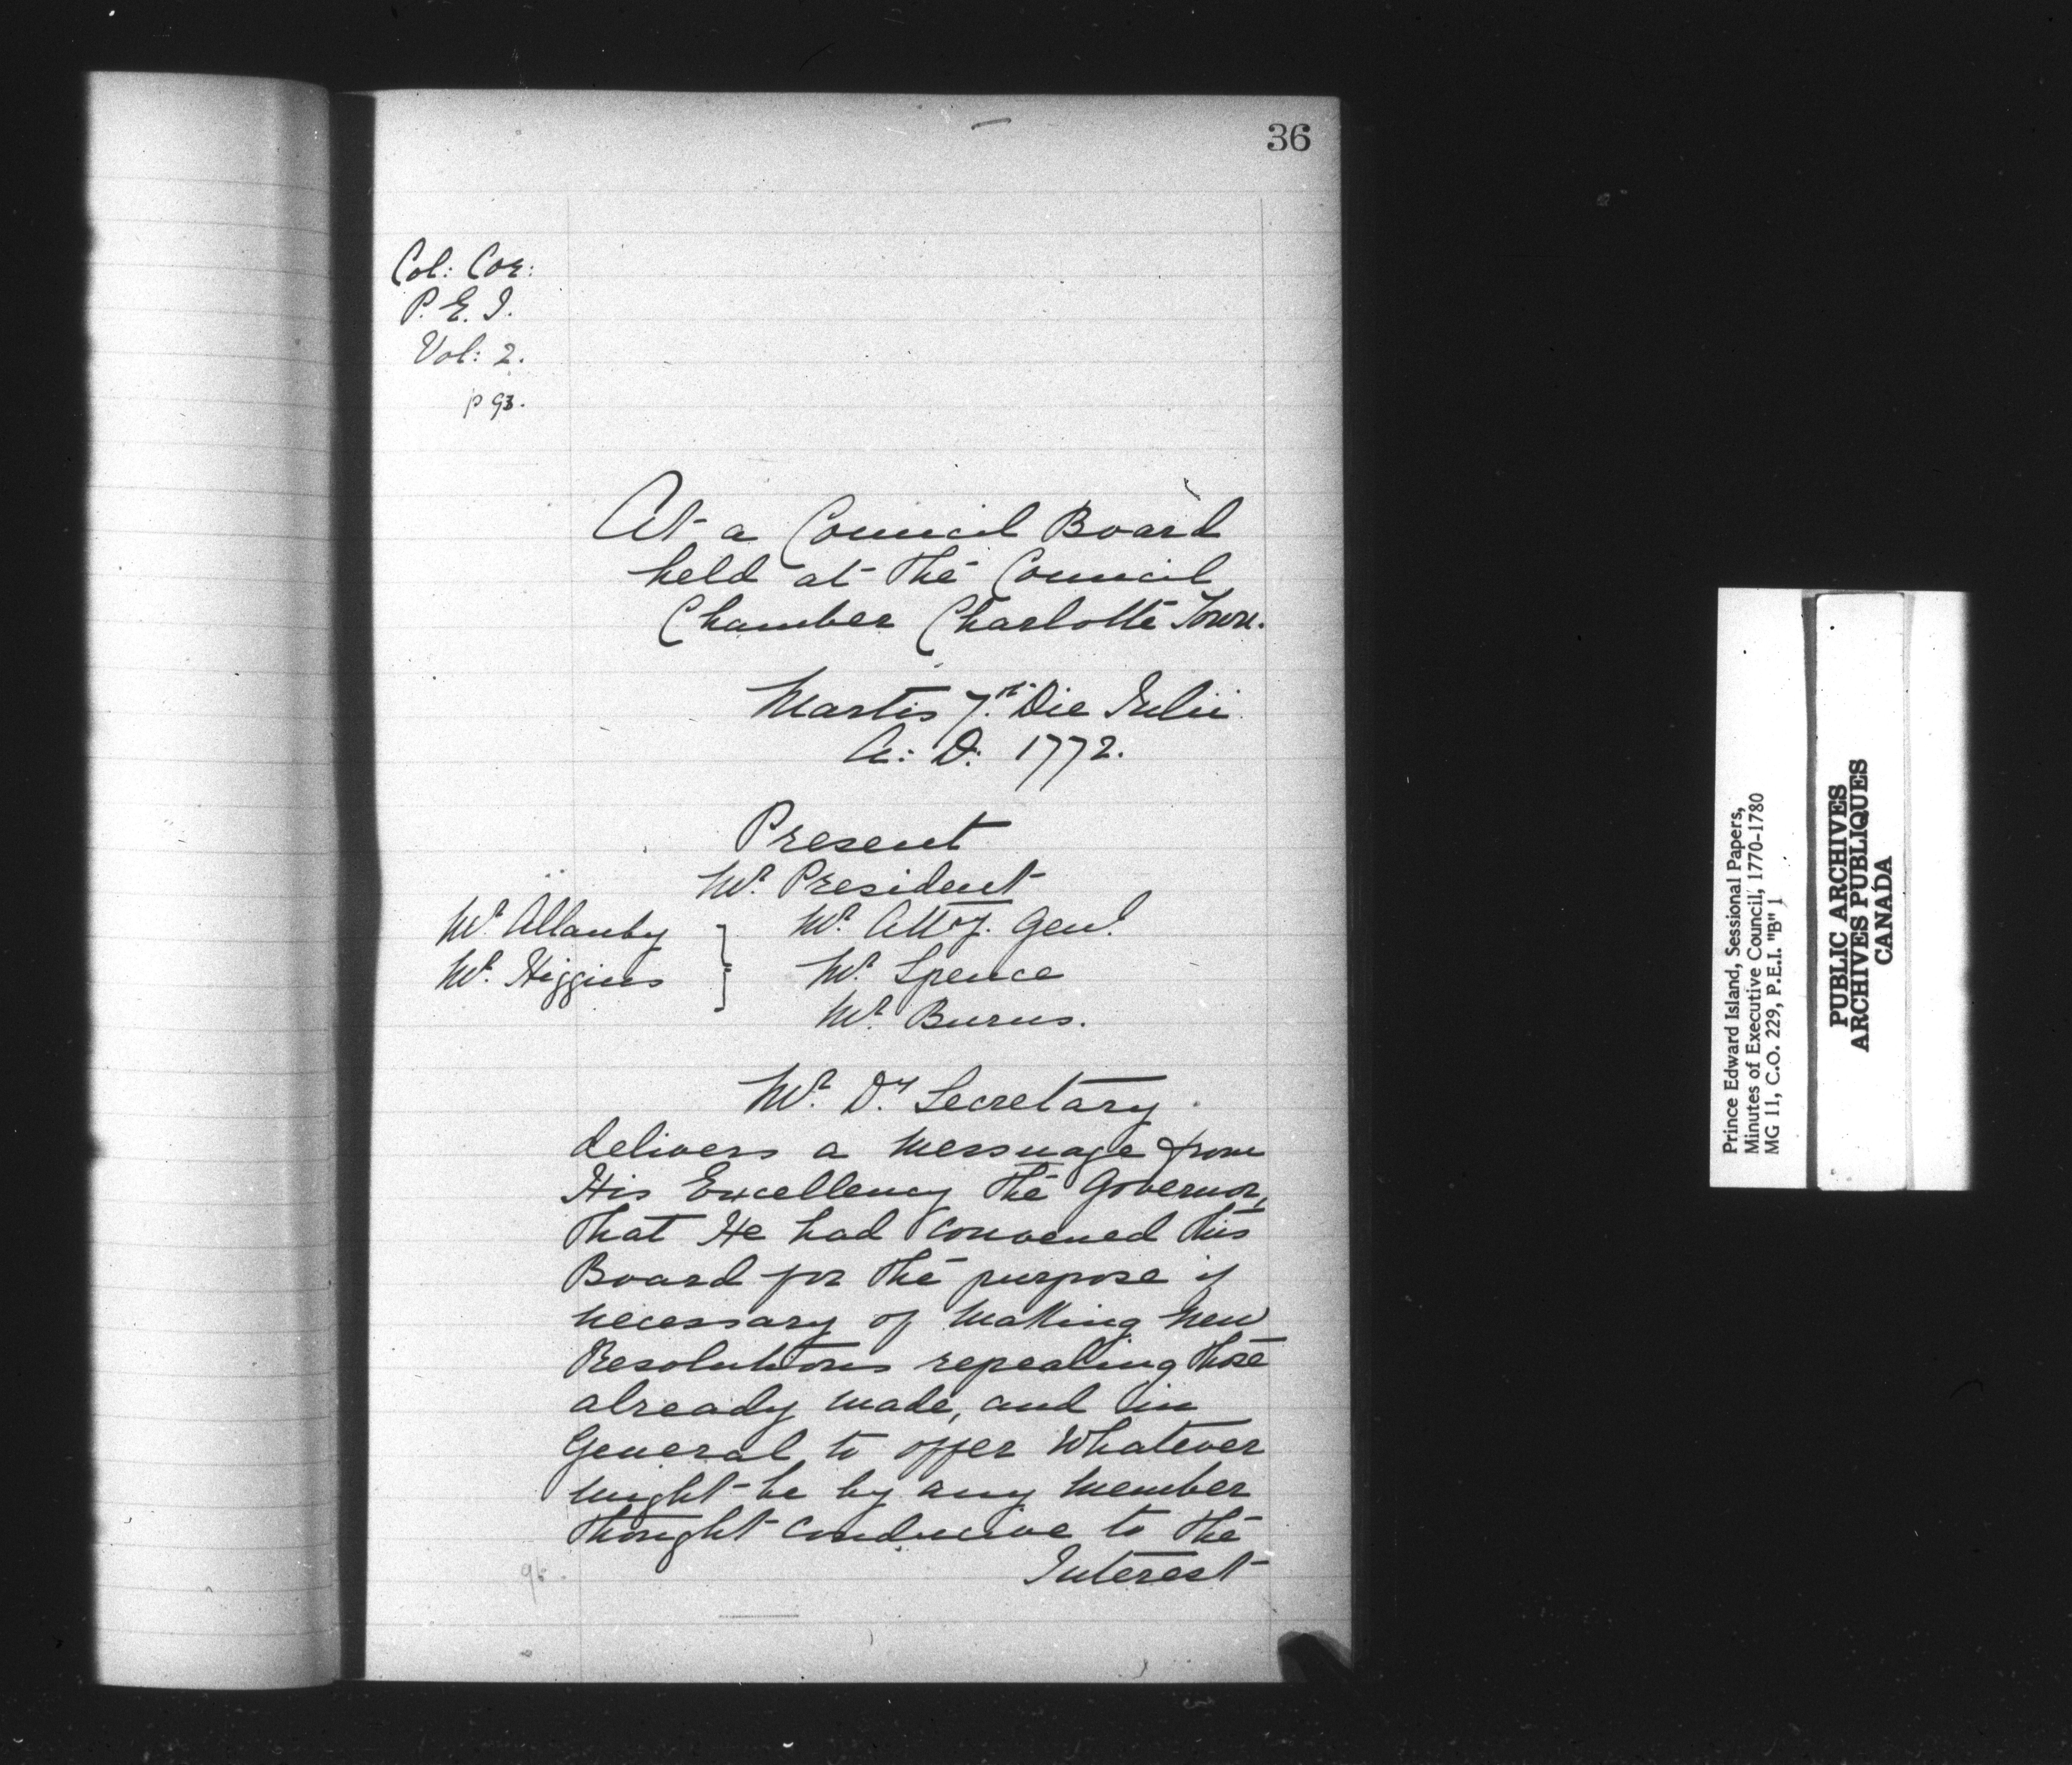 36
Col: Cor:
P. E. I.
Vol: 2.
p 93.
At a Council Board
held at the Council
Chamber Charlotte Town.
Martis 7th Die Julii
A: D: 1772.
Present
Mr. President
Mr. Allanby } Mr. Atty. Genl.
Mr. Higgins } Mr. Spence
Mr. Burns.
Mr. Dy Secretary
delivers a messuage from
His Excellency the Governor,
that He had convened this
Board for the purpose if
necessary of making new
Resolutions repealing those
already made, and in
General to offer whatever
might be by any member
thought conducive to the
Interest
Prince Edward Island, Sessional Papers,
Minutes of Executive Council, 1770-1780
MG 11, C.O. 229, P.E.I. "B" 1
PUBLIC ARCHIVES
ARCHIVES PUBLIQUES
CANADA